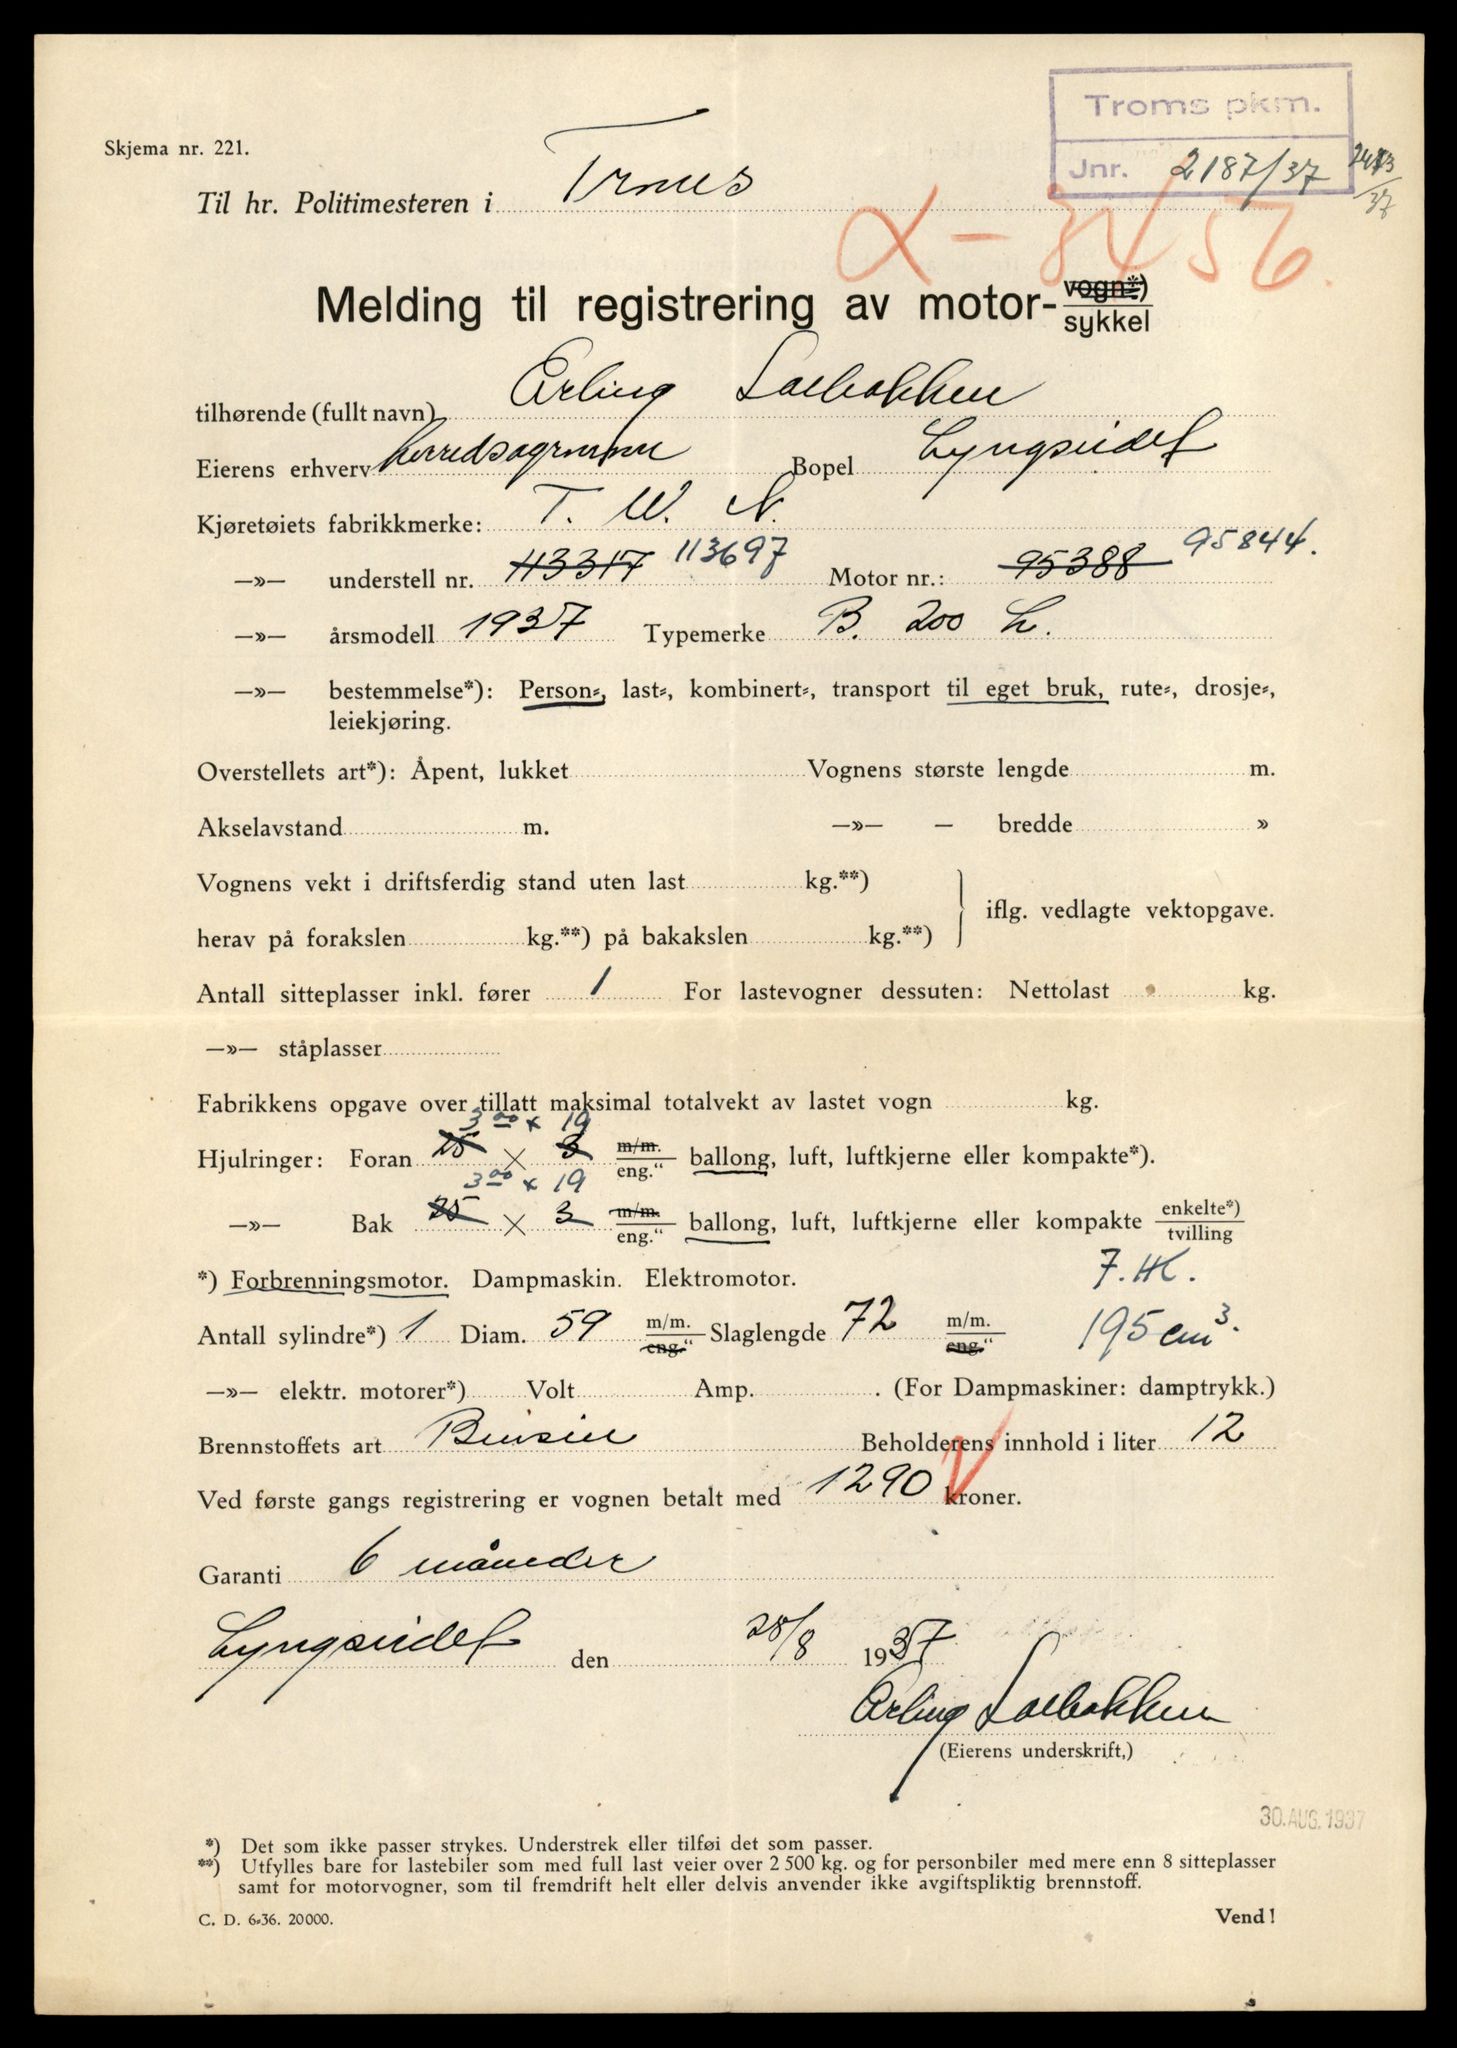 Troms pkm.
Jnr. 2187/37
Skjema nr. 221.
Til hr. Politimesteren i Troms
X - 3456.
Melding til registrering av motor- vogn*) / sykkel
tilhørende (fullt navn) Erling Solbakken
Eierens erhverv herredsagronom Bopel Lyngseidet
Kjøretøiets fabrikkmerke: T. W. N.
—»— understell nr. 113317 113697 Motor nr.: 95388 95844.
—»— årsmodell 1937 Typemerke B. 200 L.
—»— bestemmelse*): Person-, last-, kombinert-, transport til eget bruk, rute-, drosje-,
leiekjøring.
Overstellets art*): Åpent, lukket Vognens største lengde m.
Akselavstand m. —»— — bredde »
Vognens vekt i driftsferdig stand uten last kg.**)
herav på forakslen kg.**) på bakakslen kg.**)
iflg. vedlagte vektopgave.
Antall sitteplasser inkl. fører 1 For lastevogner dessuten: Nettolast kg.
—»— ståplasser
Fabrikkens opgave over tillatt maksimal totalvekt av lastet vogn kg.
3.00 x 19
Hjulringer: Foran 25 × 3 m/m. / eng." ballong, luft, luftkjerne eller kompakte*).
3.00 x 19
—»— Bak 25 × 3 m/m. / eng." ballong, luft, luftkjerne eller kompakte enkelte*) / tvilling
*) Forbrenningsmotor. Dampmaskin. Elektromotor. 7. HK.
Antall sylindre*) 1 Diam. 59 m/m. / eng." Slaglengde 72 m/m. / eng." 195 cm³.
—»— elektr. motorer*) Volt Amp. . (For Dampmaskiner: damptrykk.)
Brennstoffets art Bensin Beholderens innhold i liter 12
Ved første gangs registrering er vognen betalt med 1290 kroner.
Garanti 6 måneder
Lyngseidet den 28/8 1937
Erling Solbakken
(Eierens underskrift,)
30. AUG. 1937
*) Det som ikke passer strykes. Understrek eller tilføi det som passer.
**) Utfylles bare for lastebiler som med full last veier over 2 500 kg. og for personbiler med mere enn 8 sitteplasser
samt for motorvogner, som til fremdrift helt eller delvis anvender ikke avgiftspliktig brennstoff.
C. D. 6-36. 20000.
Vend!